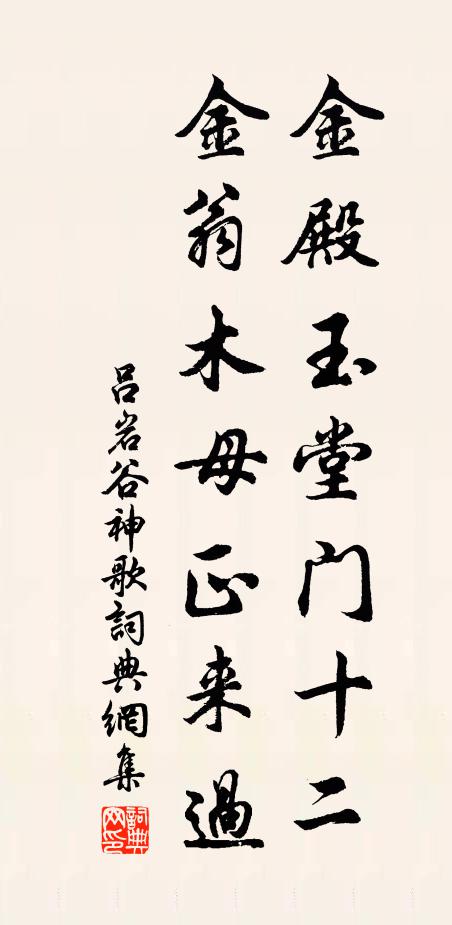 金殿玉堂门十二
金翁木母正来過
吕岩谷神歌詞典網集
詞典
网印